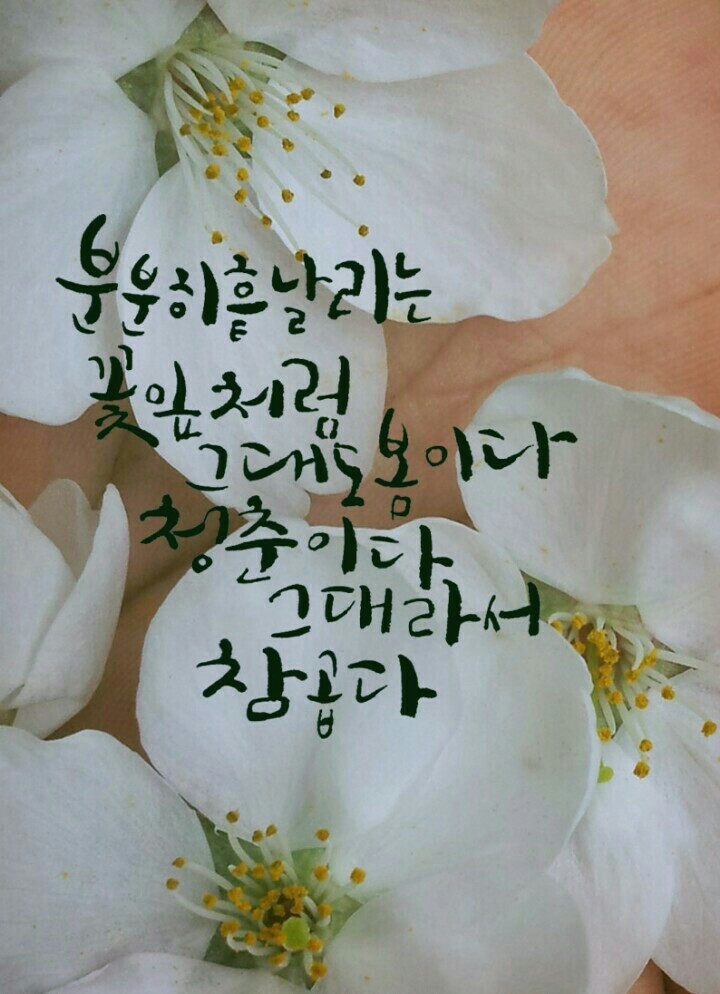 분분히 흩날리는
꽃잎처럼
그대도 봄이다
청춘이다
그대라서
참 곱다